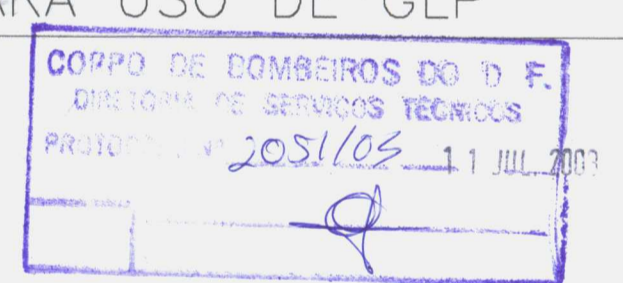 USO DE GLP
CORPO DE BOMBEIROS DO D F.
DIRETORIA DE SERVIÇOS TECNICOS
PROTOCOLO Nº 2051/03 11 JUL. 2003